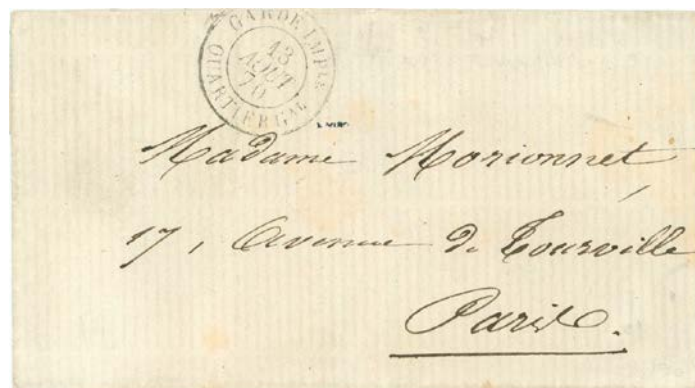 GARDE IMPLE
QUARTIER GAL
13
AOUT
70
Madame Morionnet,
17, Avenue de Tourville
Paris.